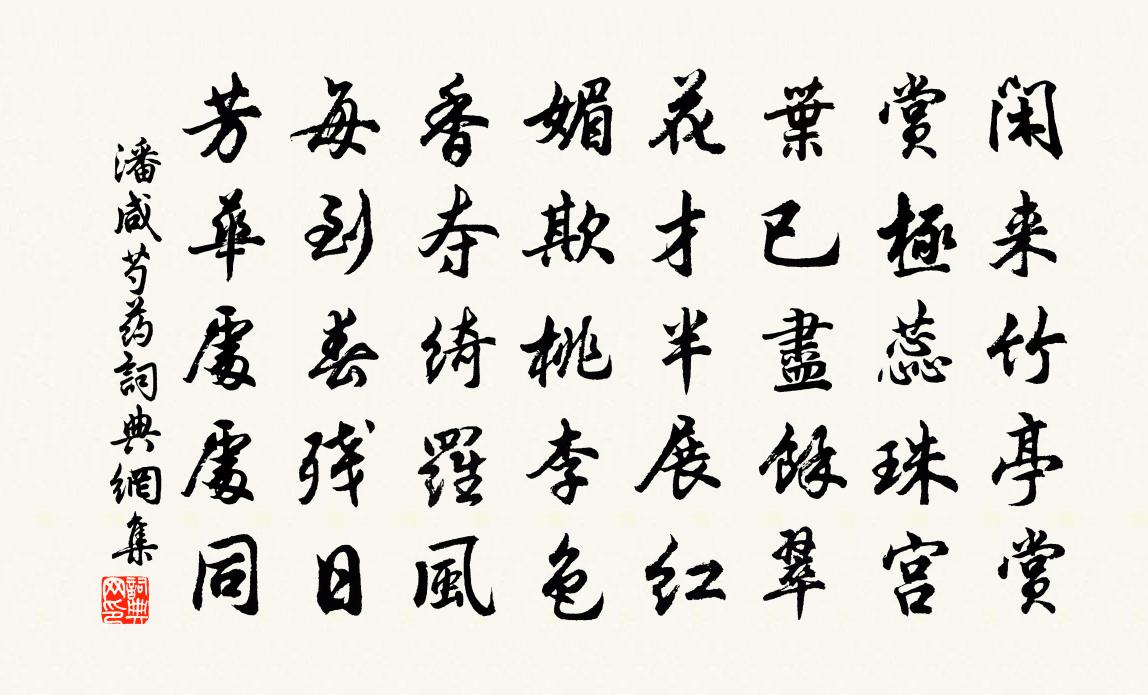 閑来竹亭賞
賞極蕊珠宫
葉已盡餘翠
花才半展红
媚欺桃李色
香夺綺羅風
每到春残日
芳華處處同
潘咸芍药詞典網集
詞典网印